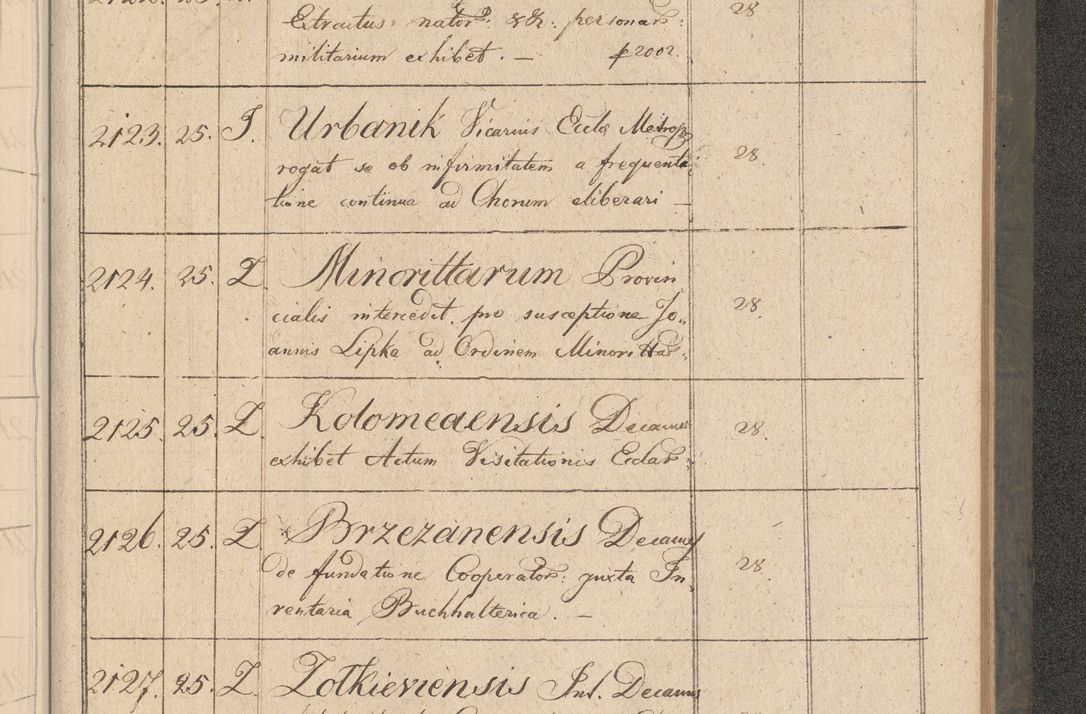 Extractus nator: &&: personar: 28
militarium exhibet. — p 2002.
2123. 25. J. Urbanik Vicarius Eccle Metrop
rogat se ob infirmitatem a frequenta: 28.
tione continua ad Chorum eliberari —
2124. 25. Z. Minorittarum Provin
cialis intercedit pro susceptione Jo„ 28.
annis Lipka ad Ordinem Minorittar„
2125. 25. Z. Kolomeaensis Decanus 28.
exhibet Actum Visitationis Eclar:
2126. 25. Z. Brzezanensis Decanus
de fundatione Cooperator: juxta In„ 28.
ventaria Buchhalterica. —
2127. 25. Z. Zolkieviensis Int. Decanus